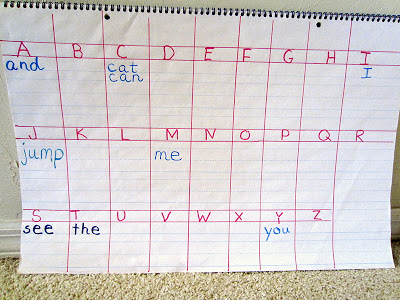 A B C D E F G H I
and cat I
can
J K L M N O P Q R
jump me
S T U V W X Y Z
see the you